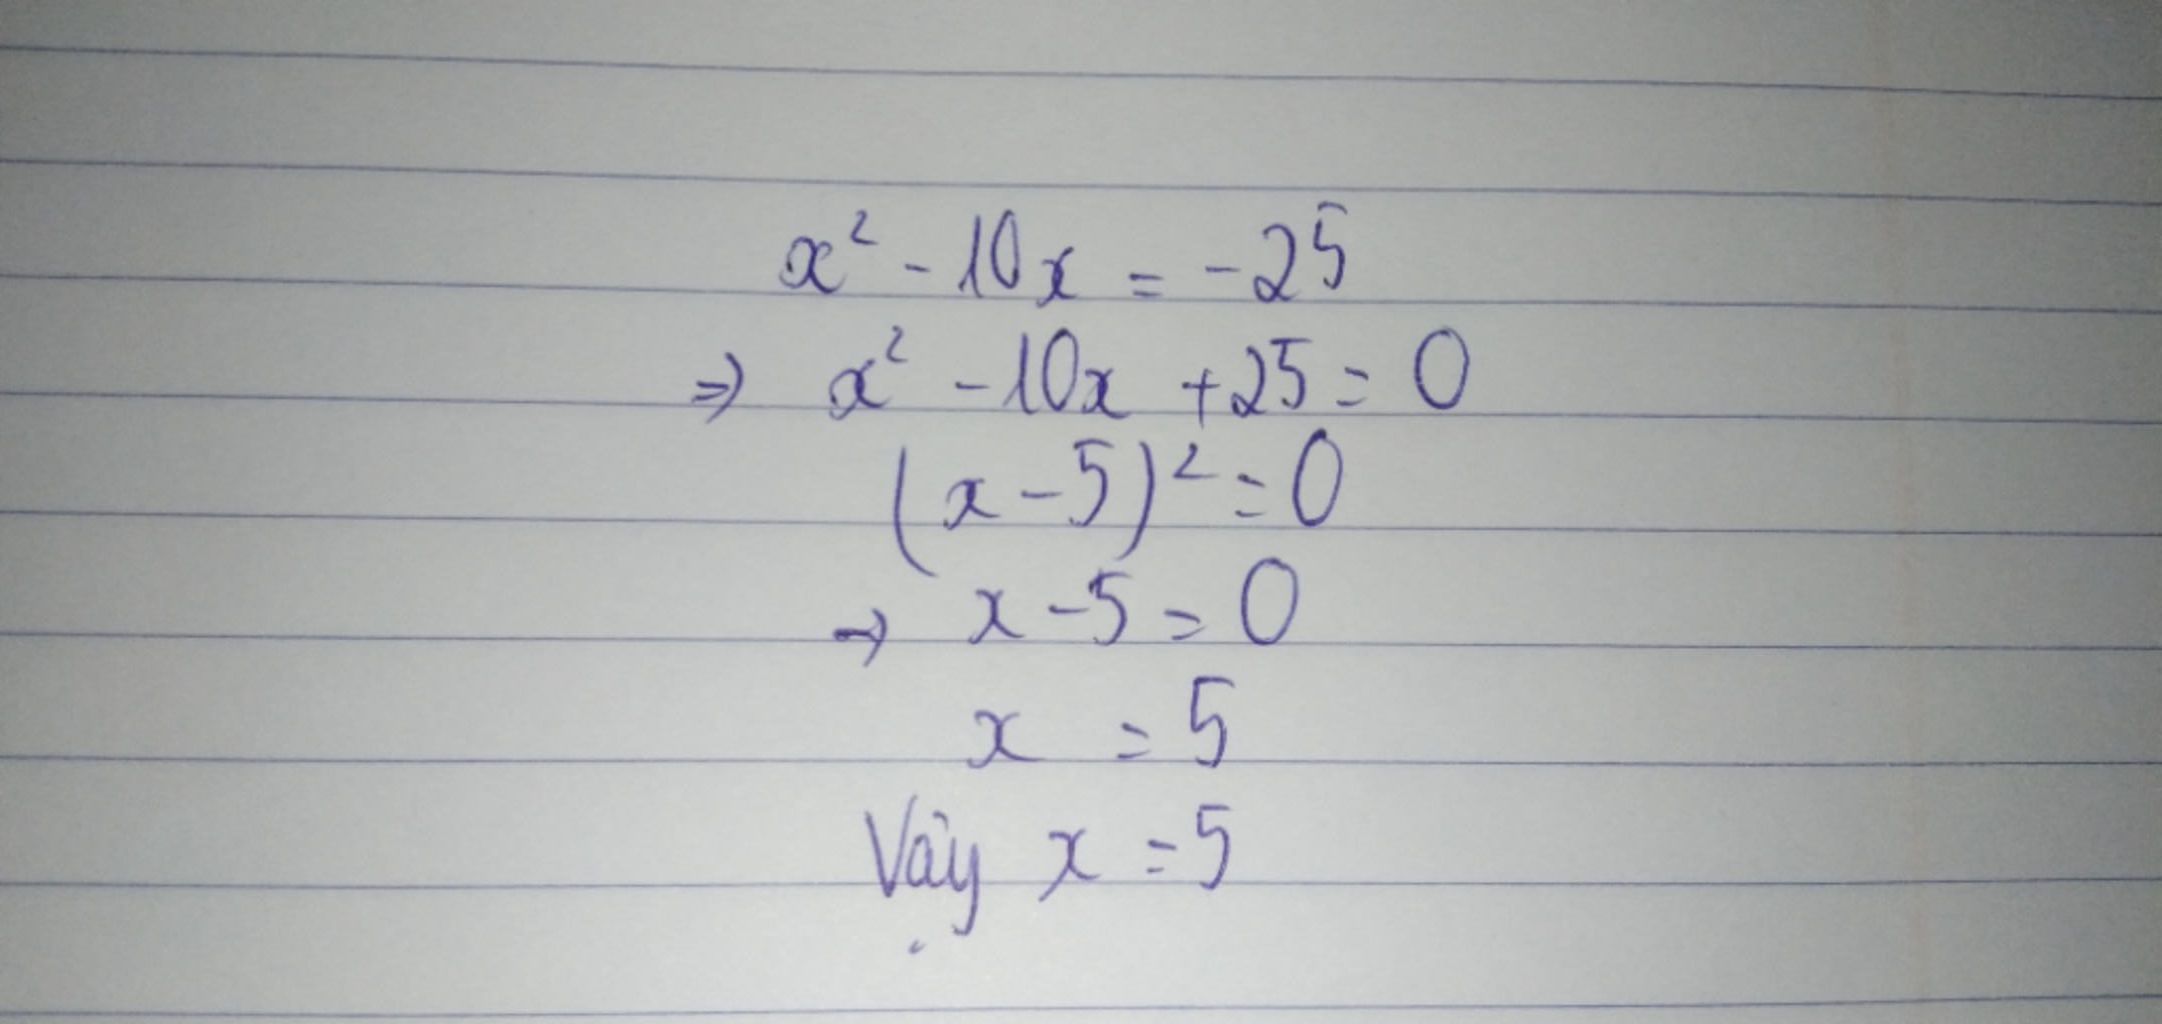 x² - 10x = -25
⇒ x² - 10x + 25 = 0
(x - 5)² = 0
⇒ x - 5 = 0
x = 5
Vậy x = 5